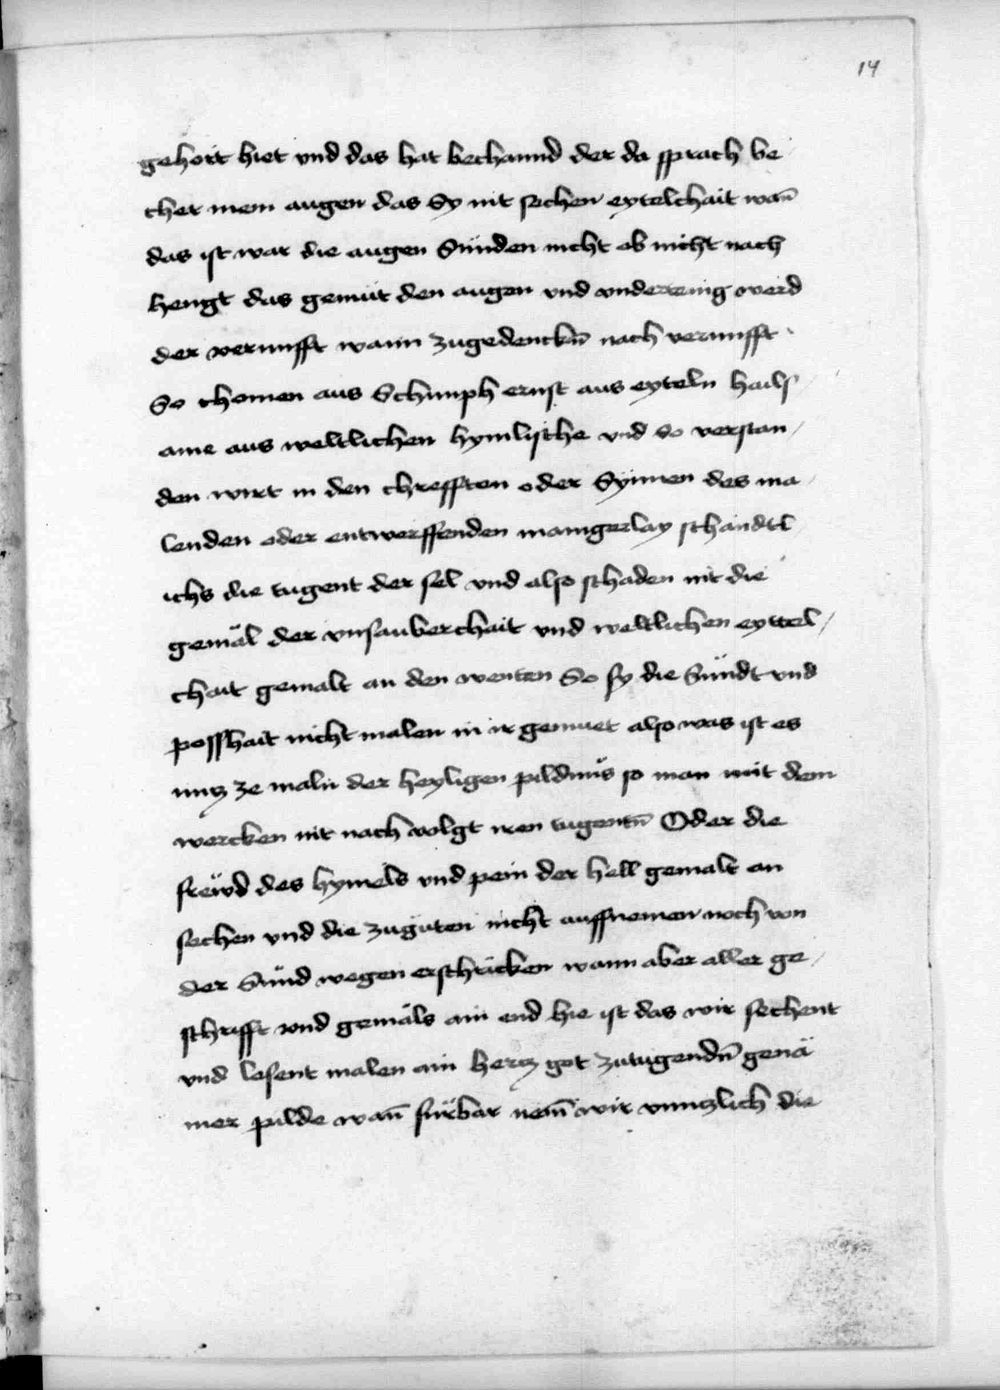 14
gehort hiet vnd das hat bechannd der da sprach be
cher mein augen das Sy nit sechen eytelchait wan̄
das ist war die augen Sünden nicht ob nicht nach
hengt das gemüt den augen vnd vndertenig werd
der vernufft wann zugedenckn̄ nach vernufft
So chomen aus Schimph ernst aus eyteln hails
ame aus weltlichen hymlische vnd so verstan
den wirt in den chrefften oder Synnen des ma
lenden oder entwerffenden manigerlay schandtl
ichs die tugent der sel vnd also schaden nit die
gemäl der vnsauberchait vnd weltlichen eyttel
chait gemalt an den wenten So sy die Sündt vnd
posshait nicht malen in ir gemuet also was ist es
nutz ze maln der heyligen pildnüs so man mit dem
wercken nit nach volgt iren tugentn̄ Oder die
frewd des hymels vnd pein der hell gemalt an
sechen vnd die zuguten nicht auffnemen noch von
der Sünd wegen erschricken wann aber aller ge
schrifft vnd gemäls ain end hie ist das wir sechent
vnd lesent malen ain hertz got zutugendn̄ genä
mer pilde wan̄ fürbar nem̄ wir vnnutzlich die